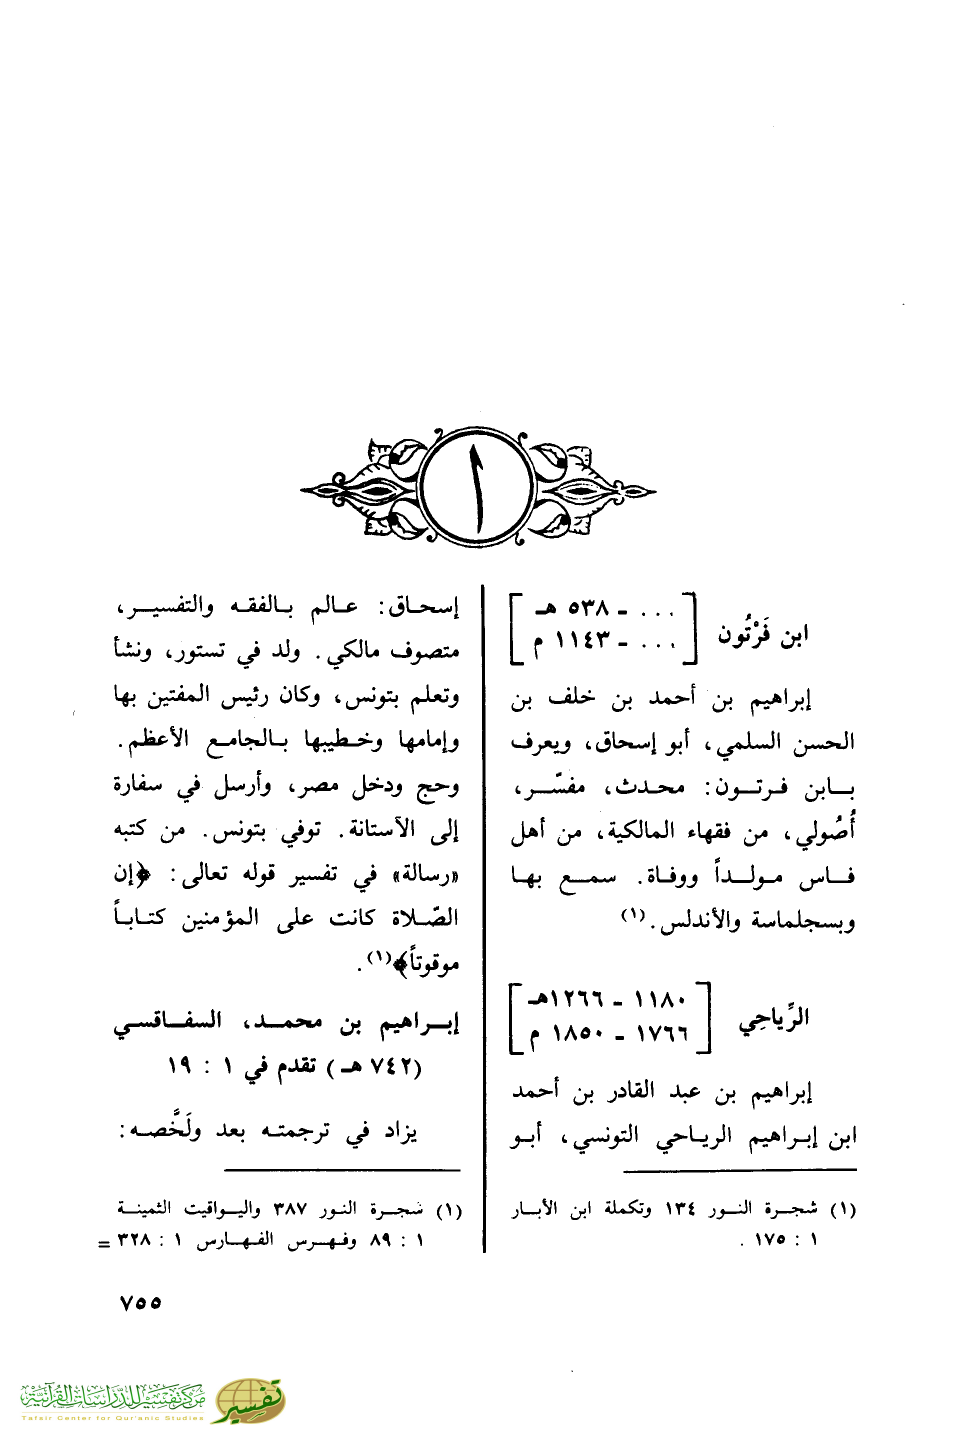 ا
ابن فَرْتُون
[ ... ـ ٥٣٨ هـ
... ـ ١١٤٣ م ]
إبراهيم بن أحمد بن خلف بن
الحسن السلمي، أبو إسحاق، ويعرف
بـابن فـرتـون: محـدث، مفسّـر،
أُصُولي، من فقهاء المالكية، من أهل
فـاس مولـداً ووفـاة. سمـع بهـا
وبسجلماسة والأندلس.(١)
الرِّياحِي
[ ١١٨٠ ـ ١٢٦٦هـ
١٧٦٦ ـ ١٨٥٠ م ]
إبراهيم بن عبد القادر بن أحمد
ابن إبـراهيم الريـاحي التونسي، أبـو
(١) شجـرة النـور ١٣٤ وتكملة ابن الأبـار
١ : ١٧٥ .
إسحـاق: عـالم بـالفقـه والتفسيـر،
متصوف مالكي. ولد في تستور، ونشأ
وتعلم بتونس، وكان رئيس المفتين بها
وإمامها وخـطيبها بـالجامـع الأعظم.
وحج ودخل مصر، وأرسل في سفارة
إلى الآستانة. توفي بتونس. من كتبه
«رسالة» في تفسير قوله تعالى: ﴿إن
الصّلاة كانت على المؤمنين كتـابـاً
موقوتاً﴾(١).
إبـراهيم بن محمـد، السفـاقسي
(٧٤٢ هـ) تقدم في ١ : ١٩
يزاد في ترجمتـه بعد ولَخَّصـه:
(١) شجـرة النـور ٣٨٧ واليـواقيت الثمينـة
١ : ٨٩ وفـهـرس الفهـارس ١ : ٣٢٨ =
٧٥٥
مركز تفسير للدراسات القرآنية
Tafsir Center for Qur'anic Studies
تفسير